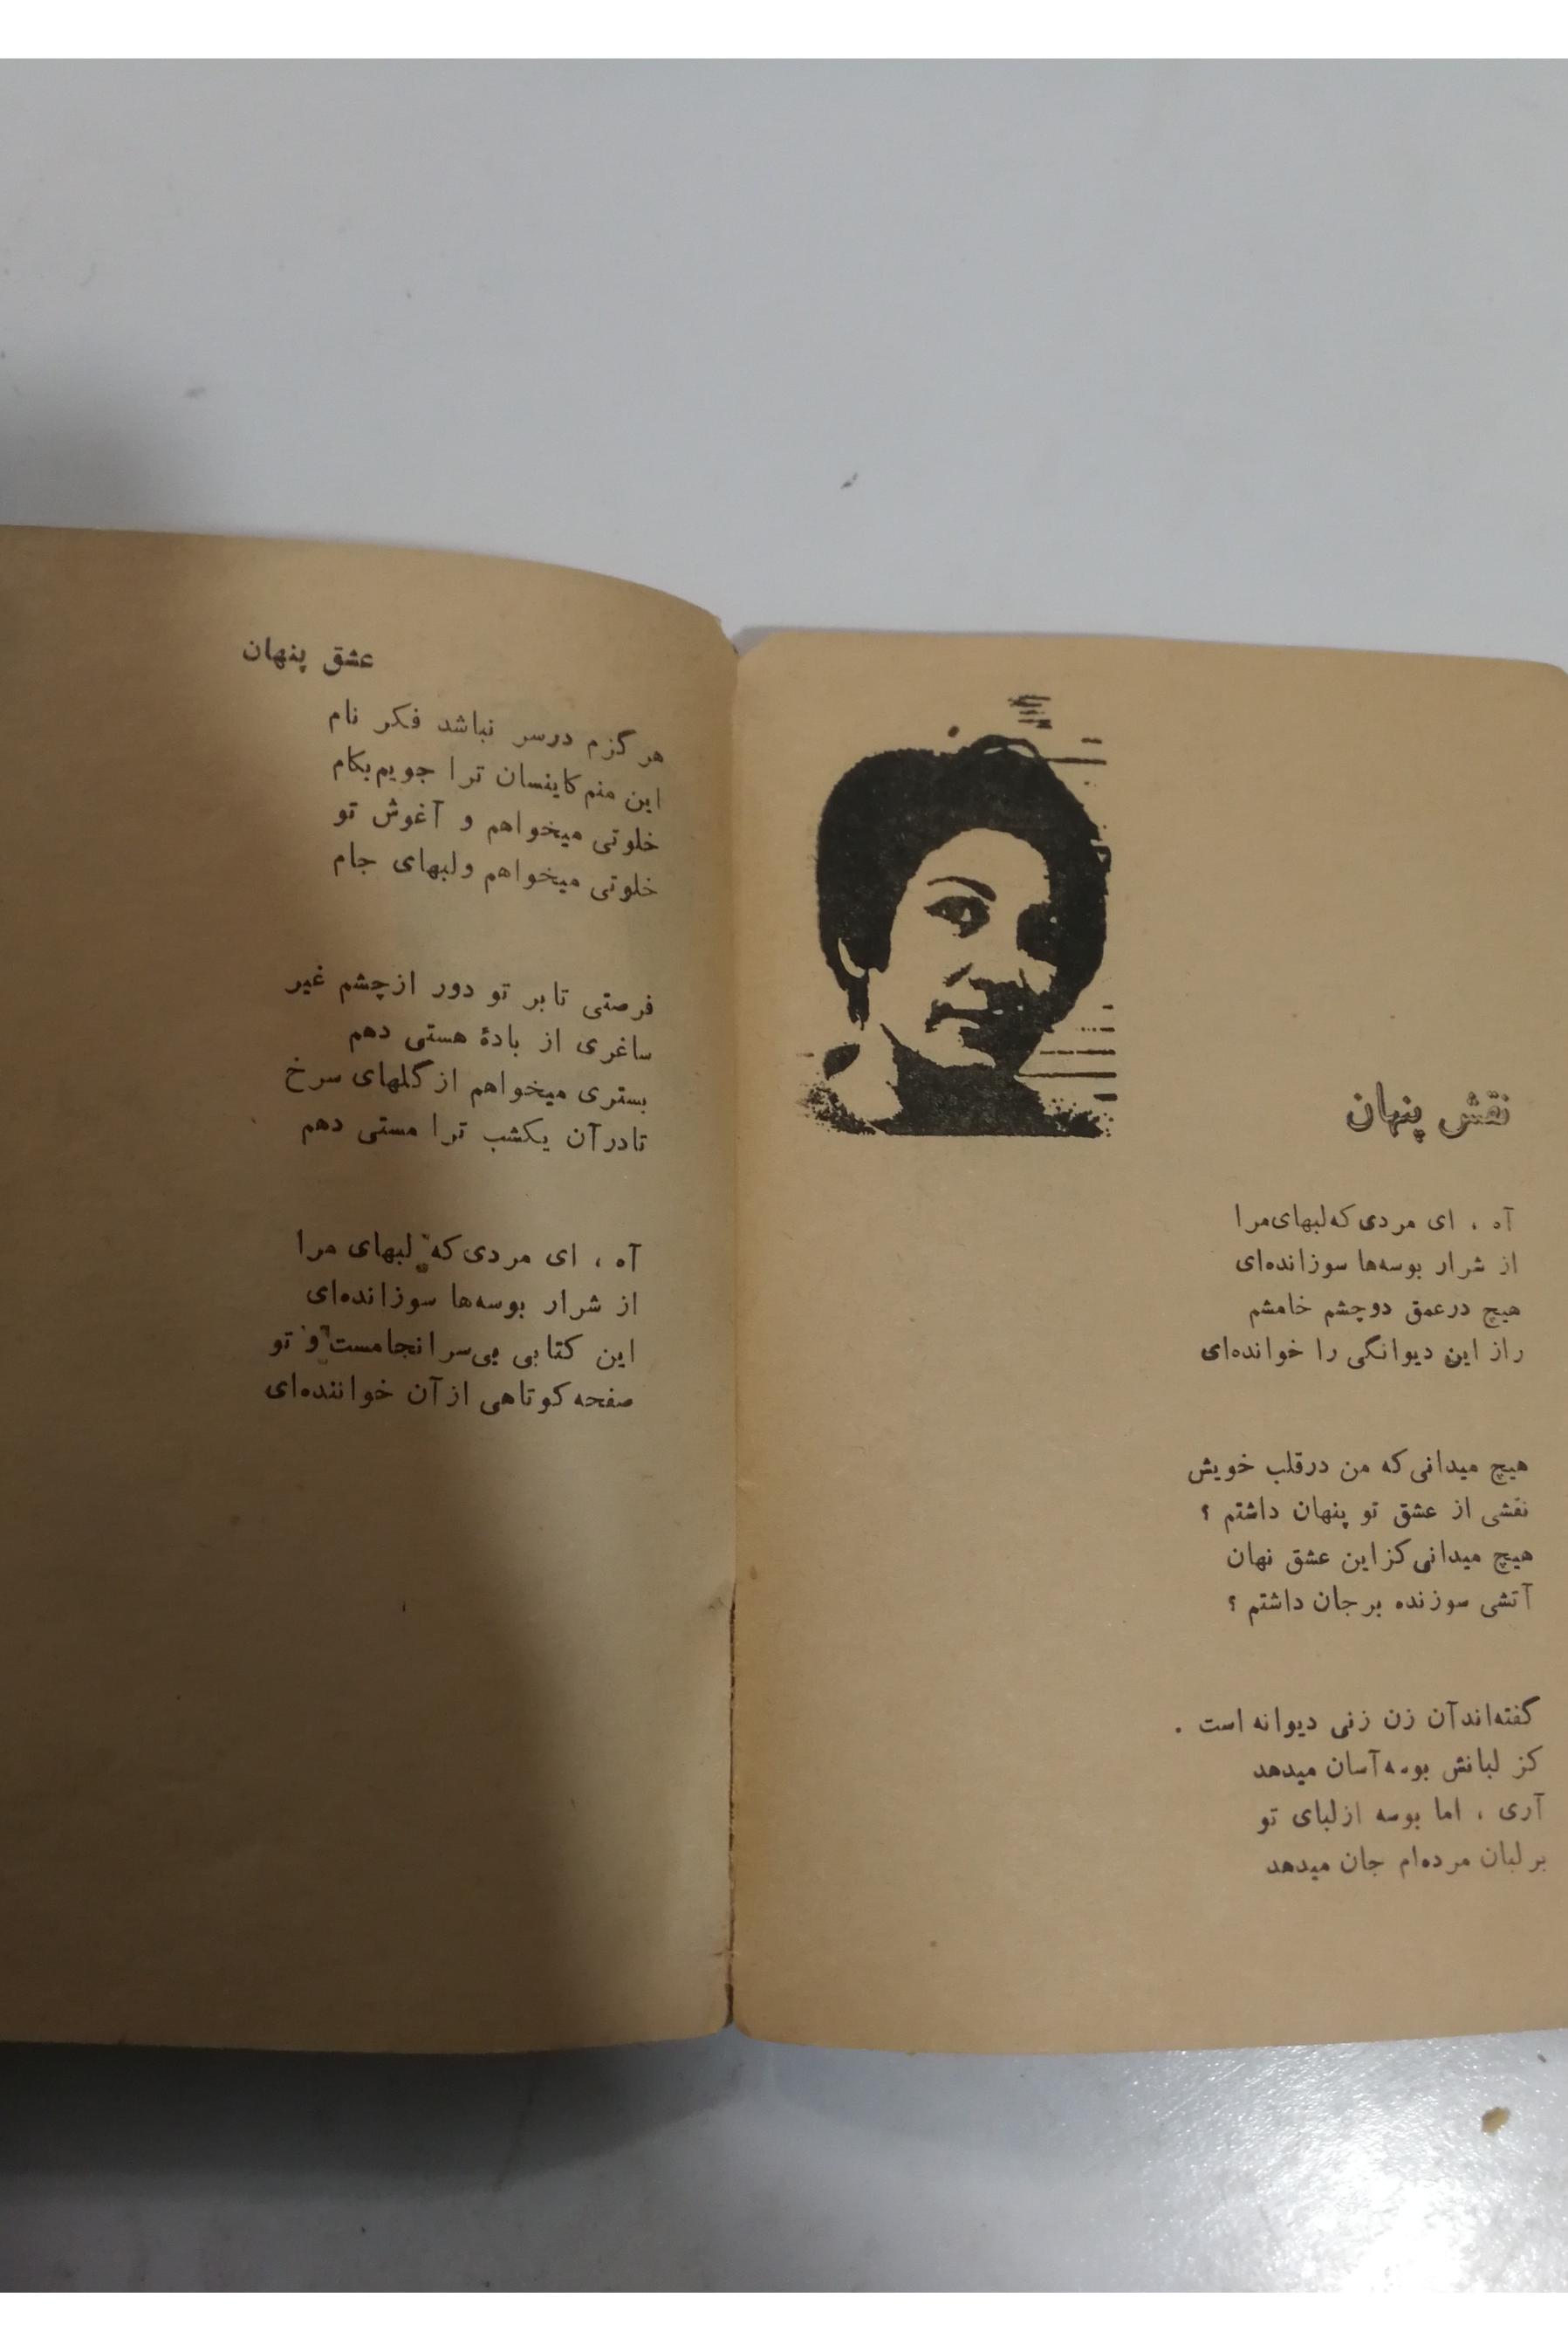 نقش پنهان
آه ، ای مردی که لبهای مرا
از شرار بوسه‌ها سوزانده‌ای
هیچ درعمق دوچشم خامشم
راز این دیوانگی را خوانده‌ای
هیچ میدانی که من درقلب خویش
نقشی از عشق تو پنهان داشتم ؟
هیچ میدانی کز این عشق نهان
آتشی سوزنده بر جان داشتم ؟
گفته‌اند آن زن زنی دیوانه است .
کز لبانش بوسه آسان میدهد
آری ، اما بوسه از لبای تو
بر لبان مرده‌ام جان میدهد
عشق پنهان
هرگزم درسر نباشد فکر نام
این منم کاینسان ترا جویم بکام
خلوتی میخواهم و آغوش تو
خلوتی میخواهم ولبهای جام
فرصتی تا بر تو دور ازچشم غیر
ساغری از بادهٔ هستی دهم
بستری میخواهم از گلهای سرخ
تادرآن یکشب ترا مستی دهم
آه ، ای مردی که لبهای مرا
از شرار بوسه‌ها سوزانده‌ای
این کتابی بی‌سرانجامست و تو
صفحه کوتاهی از آن خواننده‌ای